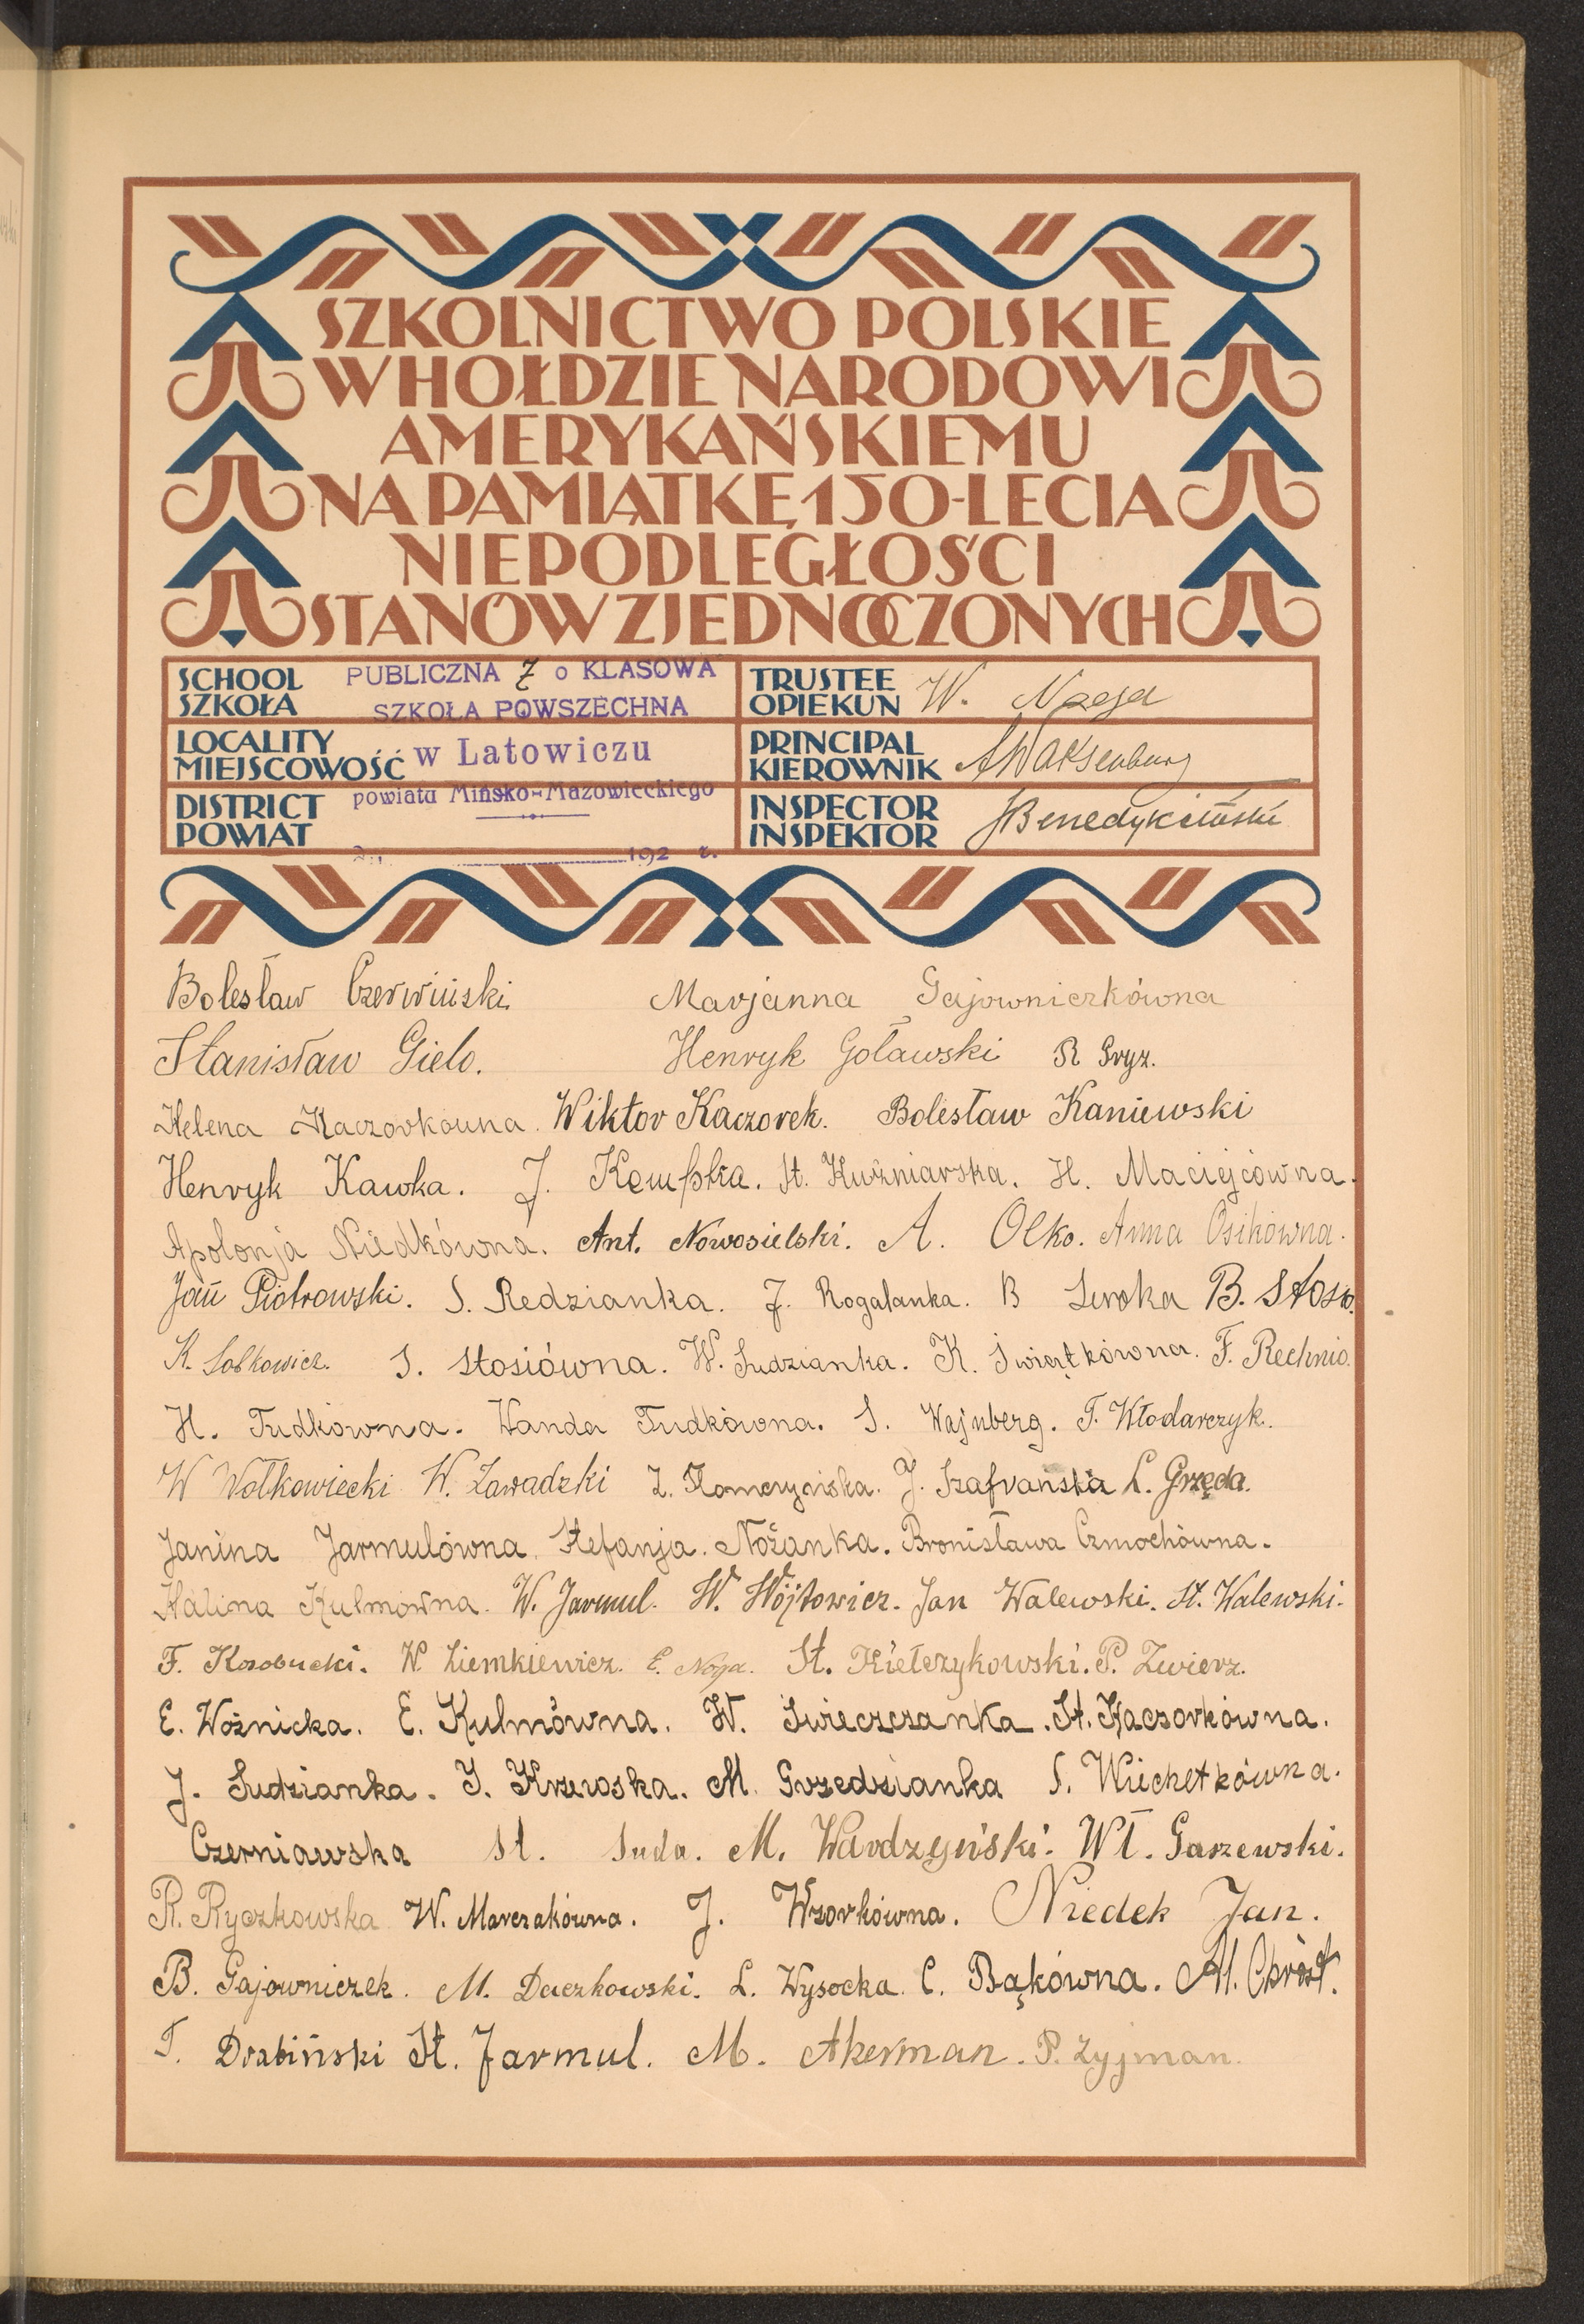 SZKOLNICTWO POLSKIE
W HOŁDZIE NARODOWI
AMERYKAŃSKIEMU
NA PAMIĄTKĘ 150-LECIA
NIEPODLEGŁOŚCI
STANÓW ZJEDNOCZONYCH
SCHOOL PUBLICZNA 7 o KLASOWA
SZKOŁA SZKOŁA POWSZECHNA
TRUSTEE
OPIEKUN W.
LOCALITY
MIEJSCOWOŚĆ w Latowiczu
PRINCIPAL
KIEROWNIK
DISTRICT powiatu Mińsko-Mazowieckiego
POWIAT
192 r.
INSPECTOR
INSPEKTOR
Bolesław Czerwiński. Marjanna Gajowniczkówna
Stanisław Gielo. Henryk Goławski R Gryz.
Helena Kaczorkówna. Wiktor Kaczorek. Bolesław Kaniewski
Henryk Kawka. J. Kempka. St. Kuźniarska. H. Maciejcówna.
Apolonja Niedkówna. Ant. Nowosielski. A. Olko. Anna Osikówna.
Jan Piotrowski. S. Redzianka. J. Rogalanka. B Seroka B. Stos
K. Sobkowicz. S. Stosiówna. W. Sudzianka. K. Świątkówna. F. Rechnio.
H. Tudkówna. Wanda Tudkówna. S. Wajnberg. T. Włodarczyk.
W Wołkowiecki W. Zawadzki Z. J. Szafrańska L. Gręda.
Janina Jarmulówna. Stefanja. Nożanka. Bronisława Czmochówna.
Halina Kulmówna. W. Jarmul. W. Wójtowicz. Jan Walewski. St. Walewski.
F. Kozobucki. W. Ziemkiewicz. E. Noga. St. Kiełczykowski. P. Zwierz.
E. Woźnicka. E. Kulmówna. W. Świeczczanka. St. Kaczorkówna.
J. Sudzianka. M. Grzedzianka S. Wiechetkówna.
Czerniawska St. Suda. M. Wardzyński. Wł. Gaszewski.
R. Ryczkowska W. Marczakówna. J. Wzorkówna. Niedek Jan.
B. Gajowniczek. M. Daczkowski. L. Wysocka. C. Bąkówna. M. Chróst.
T. Drabiński St. Jarmul. M. Akerman. P. Zyjman.